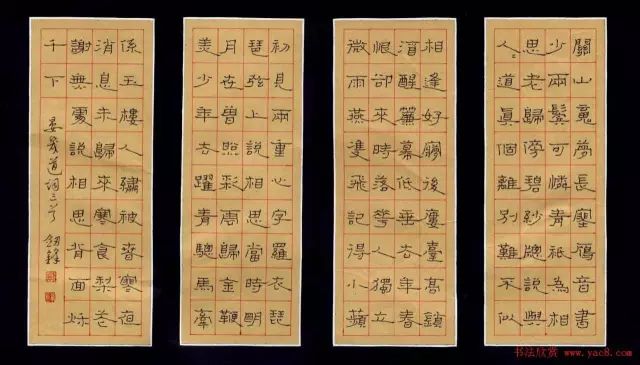 關山魂夢長塞鴈音書
少兩鬢可憐青祗為相
思老歸傍碧紗牕說與
人々道真個離別難不似
相逢好夢後樓臺高鎖
酒醒簾幕低垂去年春
恨卻來時落華人獨立
微雨燕雙飛記得小蘋
初見兩重心字羅衣琵
琶弦上說相思當時明
月在曾照彩雲歸金鞭
美少年去躍青驄馬牽
係玉樓人繡被春寒夜
消息未歸來寒食梨花
謝無處說相思背面秋
千下
晏幾道詞三首
书法欣赏 www.yac8.com